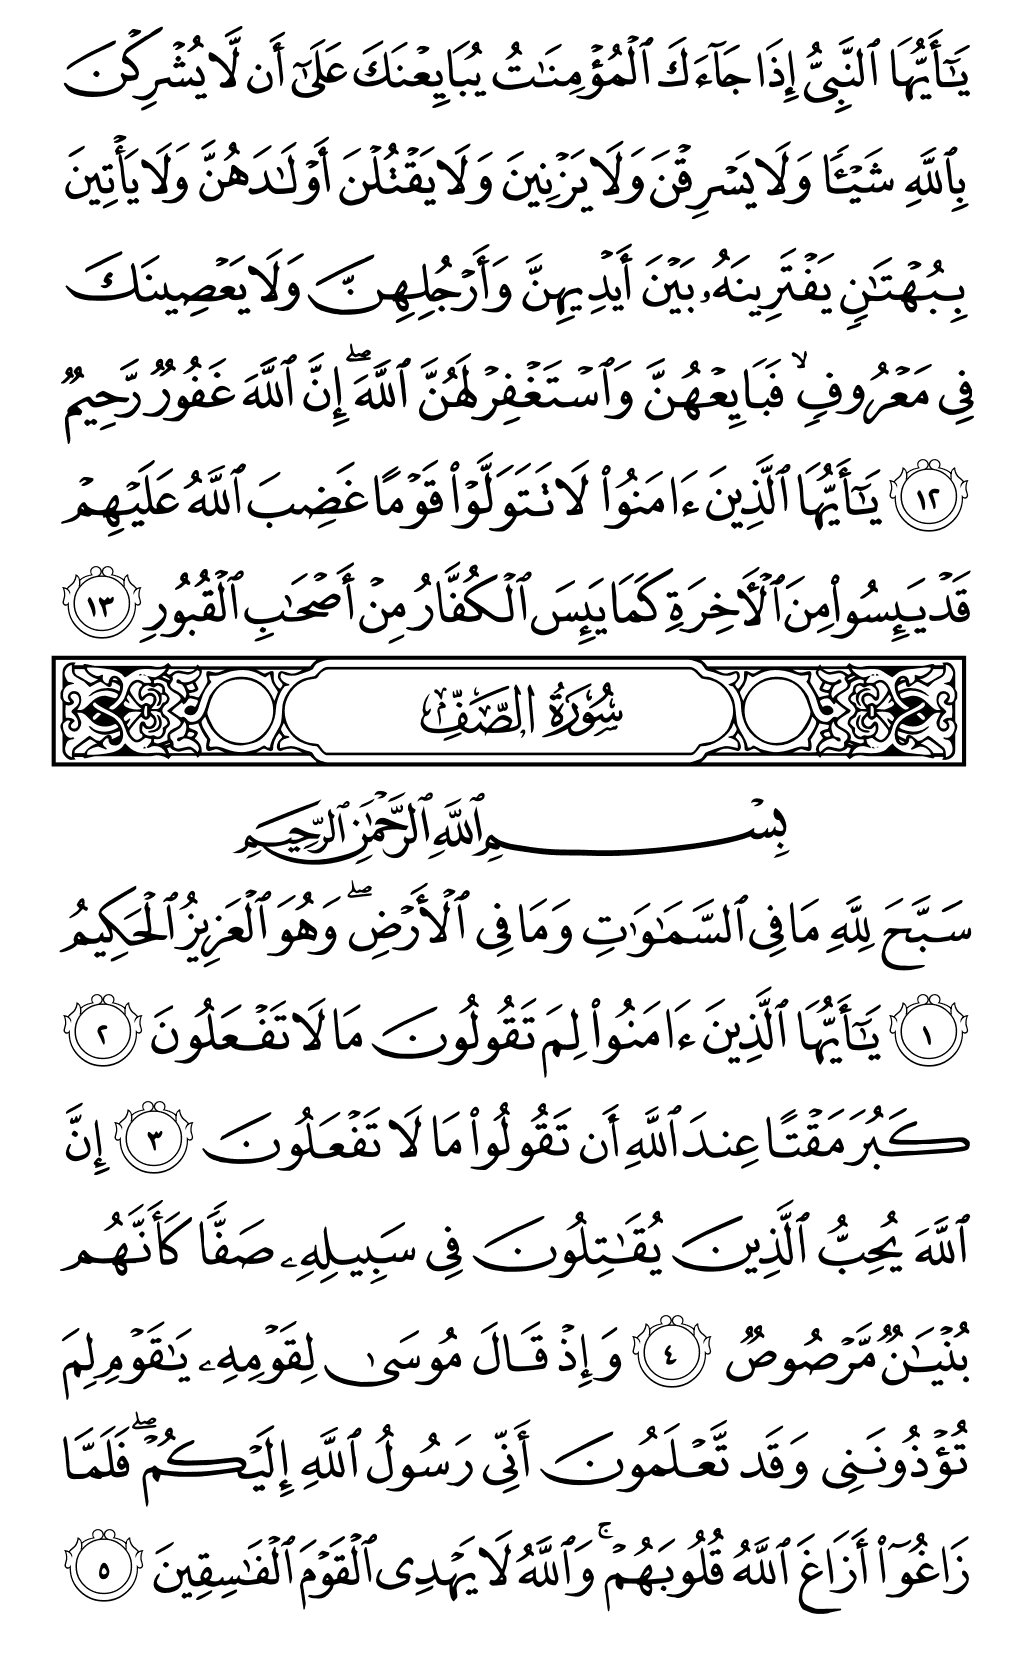 يَٰٓأَيُّهَا ٱلنَّبِىُّ إِذَا جَآءَكَ ٱلْمُؤْمِنَٰتُ يُبَايِعْنَكَ عَلَىٰٓ أَن لَّا يُشْرِكْنَ
بِٱللَّهِ شَيْـًٔا وَلَا يَسْرِقْنَ وَلَا يَزْنِينَ وَلَا يَقْتُلْنَ أَوْلَٰدَهُنَّ وَلَا يَأْتِينَ
بِبُهْتَٰنٍ يَفْتَرِينَهُۥ بَيْنَ أَيْدِيهِنَّ وَأَرْجُلِهِنَّ وَلَا يَعْصِينَكَ
فِى مَعْرُوفٍ ۙ فَبَايِعْهُنَّ وَٱسْتَغْفِرْ لَهُنَّ ٱللَّهَ ۖ إِنَّ ٱللَّهَ غَفُورٌ رَّحِيمٌ
١٢ يَٰٓأَيُّهَا ٱلَّذِينَ ءَامَنُوا۟ لَا تَتَوَلَّوْا۟ قَوْمًا غَضِبَ ٱللَّهُ عَلَيْهِمْ
قَدْ يَئِسُوا۟ مِنَ ٱلْـَٔاخِرَةِ كَمَا يَئِسَ ٱلْكُفَّارُ مِنْ أَصْحَٰبِ ٱلْقُبُورِ ١٣
سُورَةُ الصَّفِّ
بِسْمِ ٱللَّهِ ٱلرَّحْمَٰنِ ٱلرَّحِيمِ
سَبَّحَ لِلَّهِ مَا فِى ٱلسَّمَٰوَٰتِ وَمَا فِى ٱلْأَرْضِ ۖ وَهُوَ ٱلْعَزِيزُ ٱلْحَكِيمُ
١ يَٰٓأَيُّهَا ٱلَّذِينَ ءَامَنُوا۟ لِمَ تَقُولُونَ مَا لَا تَفْعَلُونَ ٢
كَبُرَ مَقْتًا عِندَ ٱللَّهِ أَن تَقُولُوا۟ مَا لَا تَفْعَلُونَ ٣ إِنَّ
ٱللَّهَ يُحِبُّ ٱلَّذِينَ يُقَٰتِلُونَ فِى سَبِيلِهِۦ صَفًّا كَأَنَّهُم
بُنْيَٰنٌ مَّرْصُوصٌ ٤ وَإِذْ قَالَ مُوسَىٰ لِقَوْمِهِۦ يَٰقَوْمِ لِمَ
تُؤْذُونَنِى وَقَد تَّعْلَمُونَ أَنِّى رَسُولُ ٱللَّهِ إِلَيْكُمْ ۖ فَلَمَّا
زَاغُوٓا۟ أَزَاغَ ٱللَّهُ قُلُوبَهُمْ ۚ وَٱللَّهُ لَا يَهْدِى ٱلْقَوْمَ ٱلْفَٰسِقِينَ ٥